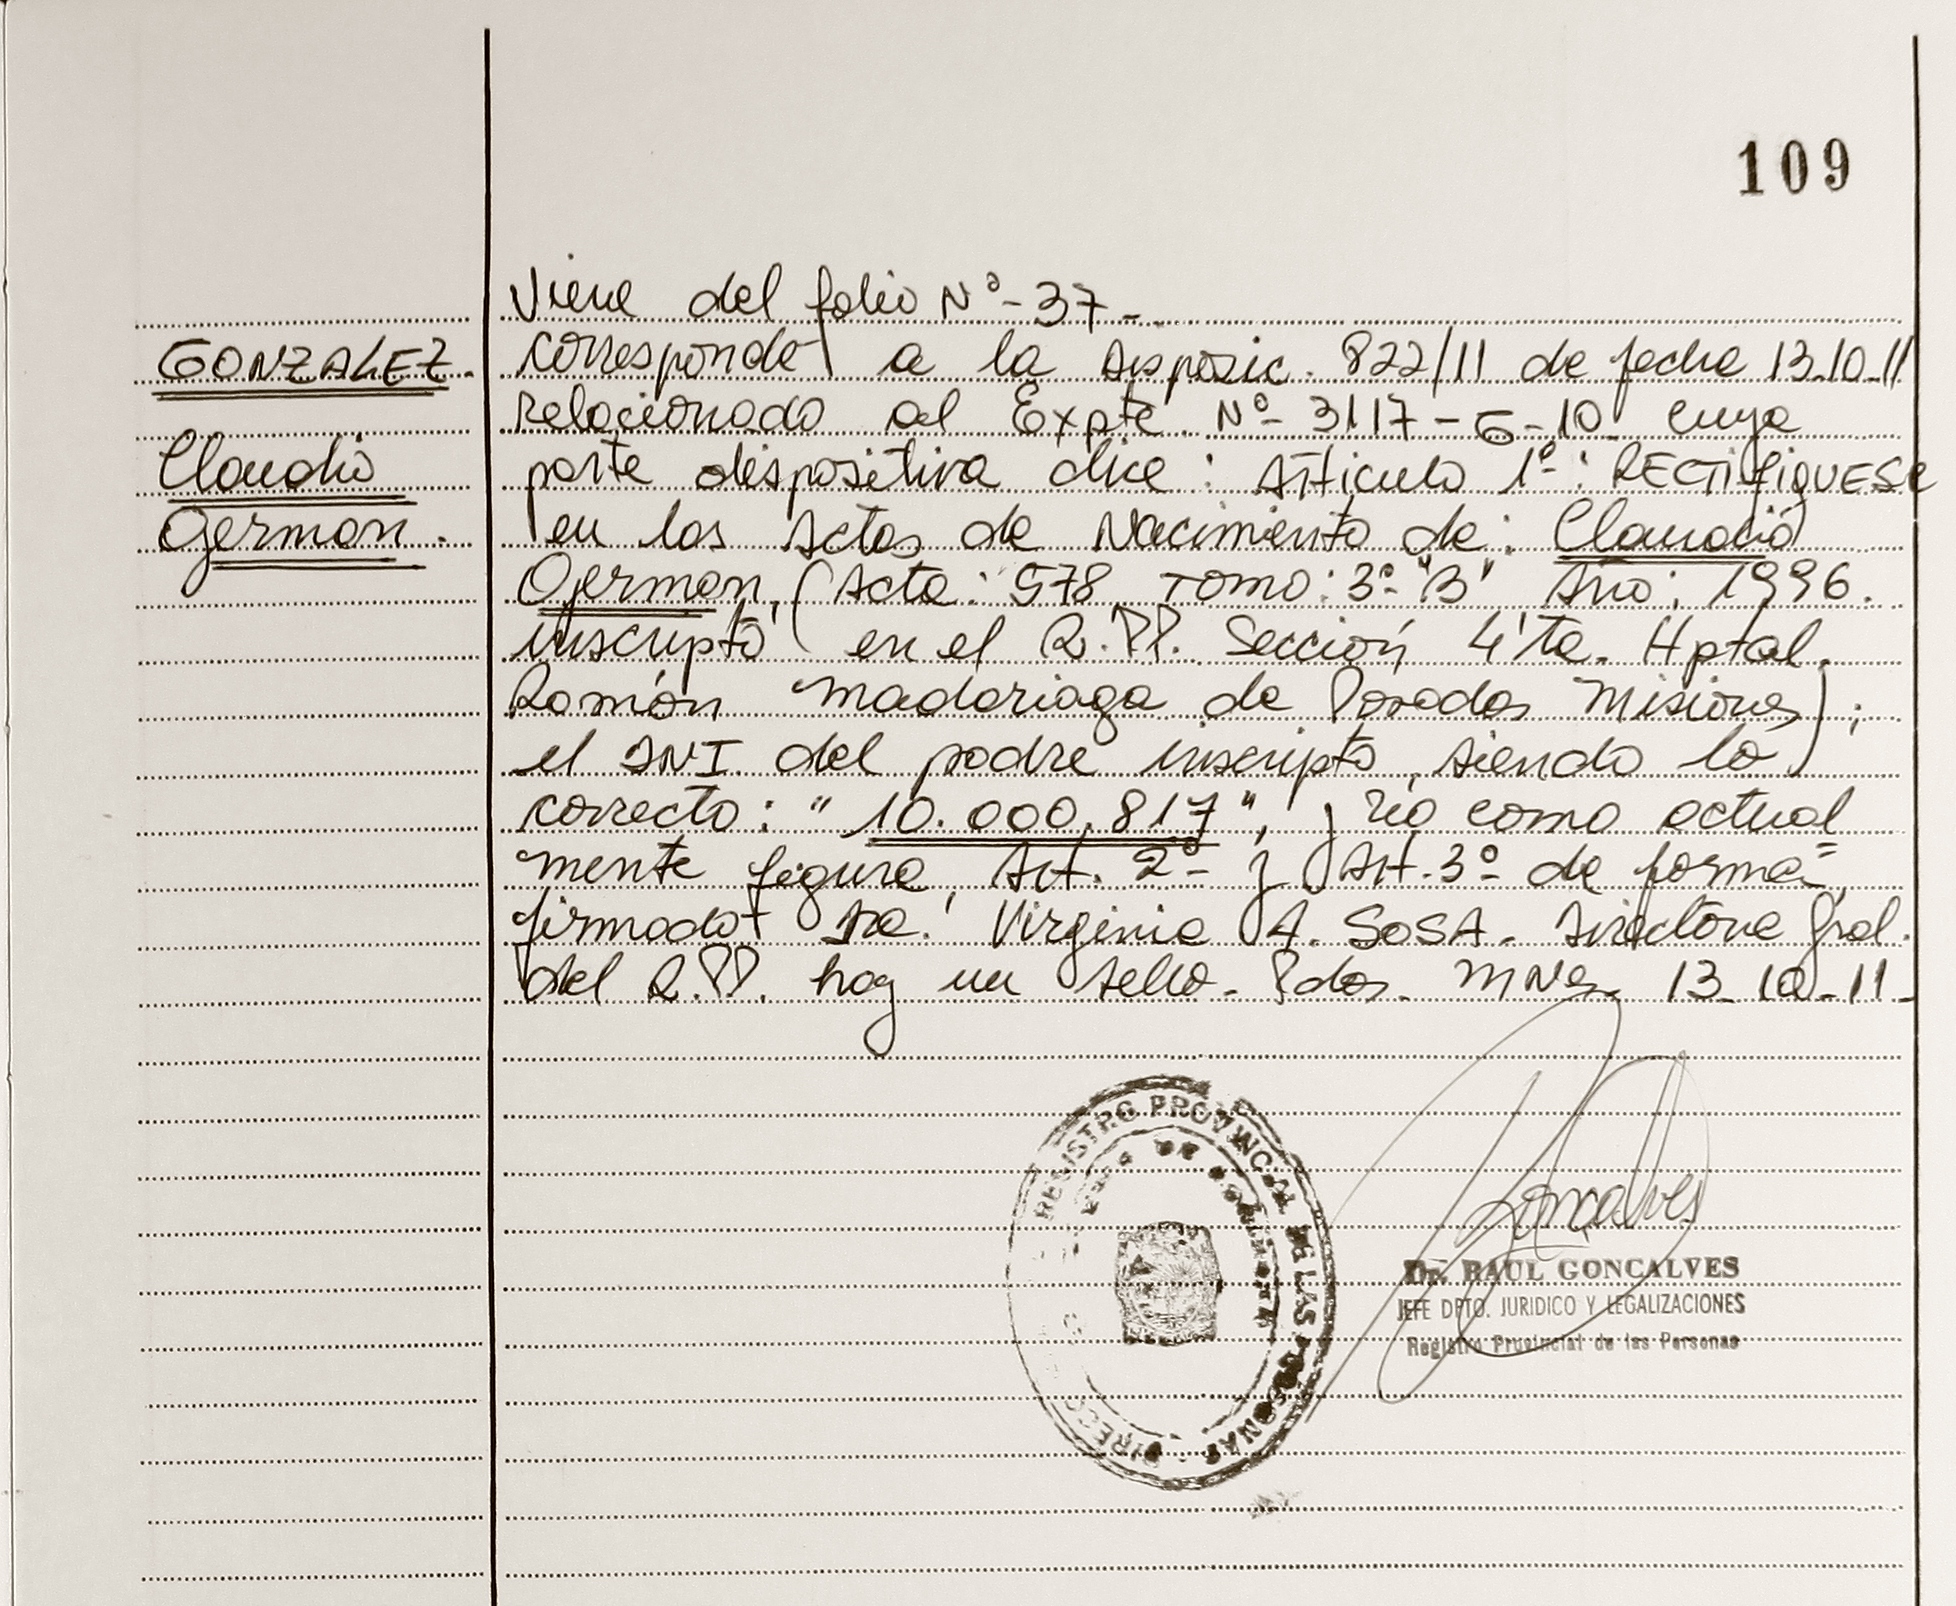 109
Viene del folio Nº-37-
GONZALEZ.
Claudio
German.
corresponde a la Disposic. 822/11 de fecha 13.10.11
relacionado al Expte. Nº- 3117-G-10 cuya
parte dispositiva dice: Artículo 1º: RECTIFIQUESE
en las Actas de Nacimiento de: Claudio
German, (Acta: 578 Tomo: 3º "B" Año: 1996.
inscripto en el R.PP. Sección 4'ta. Hptal.
Ramón Madariaga de Posadas Misiones);
el DNI del padre inscripto, siendo lo
correcto: "10.000.817", y no como actual
mente figura, Art. 2º y Art. 3º de forma=
firmado Dra. Virginia A. SOSA. Directora Gral.
del R.PP. hay un sello. Pdas. Mnes. 13-10-11-
REGISTRO PROVINCIAL DE LAS PERSONAS
Goncalves
Dr. RAUL GONCALVES
JEFE DPTO. JURIDICO Y LEGALIZACIONES
Registro Provincial de las Personas